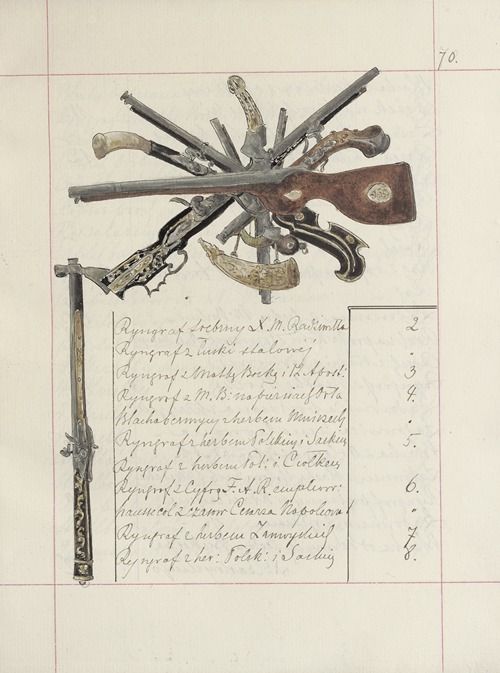 70.
Ryngraf srebrny X. M. Radziwiłła 2
Ryngraf z łuski stalowéj "
Ryngraf z Matką Boską i 12 Apost: 3
Ryngraf z M. B: na piersiach Orła 4.
Blacha z herbem Mniszech "
Ryngraf z herbem Polskim i Saskim 5.
Ryngraf z herbem Pol: i Ciołkiem
Ryngraf z Cyfrą F. A. R. 6.
hausse col z czasów Cesarza Napoleona I "
Ryngraf z herbem Zamoyskich 7
Ryngraf z her: Polsk: i Saskim 8.